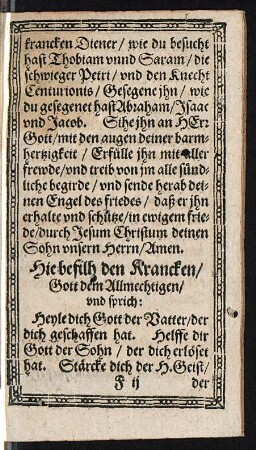 krancken Diener / wie du besucht
hast Thobiam vnnd Saram / die
schwieger Petri / vnd den Knecht
Centurionis / Gesegene jhn / wie
du gesegenet hast Abraham / Isaac
vnd Jacob. Sihe jhn an HErr
Gott / mit den augen deiner barm-
hertzigkeit / Erfülle jhn mit aller
frewde / vnd treib von jm alle sünd-
liche begirde / vnd sende herab dei-
nen Engel des friedes / daß er jhn
erhalte vnd schütze / in ewigem frie-
de / durch Jesum Christum deinen
Sohn vnsern Herrn / Amen.
Hie befilh den Krancken /
Gott dem Allmechtigen /
vnd sprich:
Heyle dich Gott der Vatter / der
dich geschaffen hat. Helffe dir
Gott der Sohn / der dich erlöset
hat. Stärcke dich der H. Geist /
F ij der